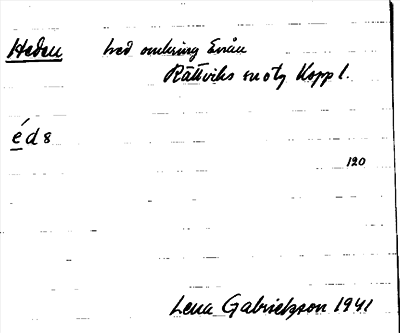 Heden hed omkring Enån
Rättviks sn o tg Kopp l.
éd8
120
Lena Gabrielsson 1941